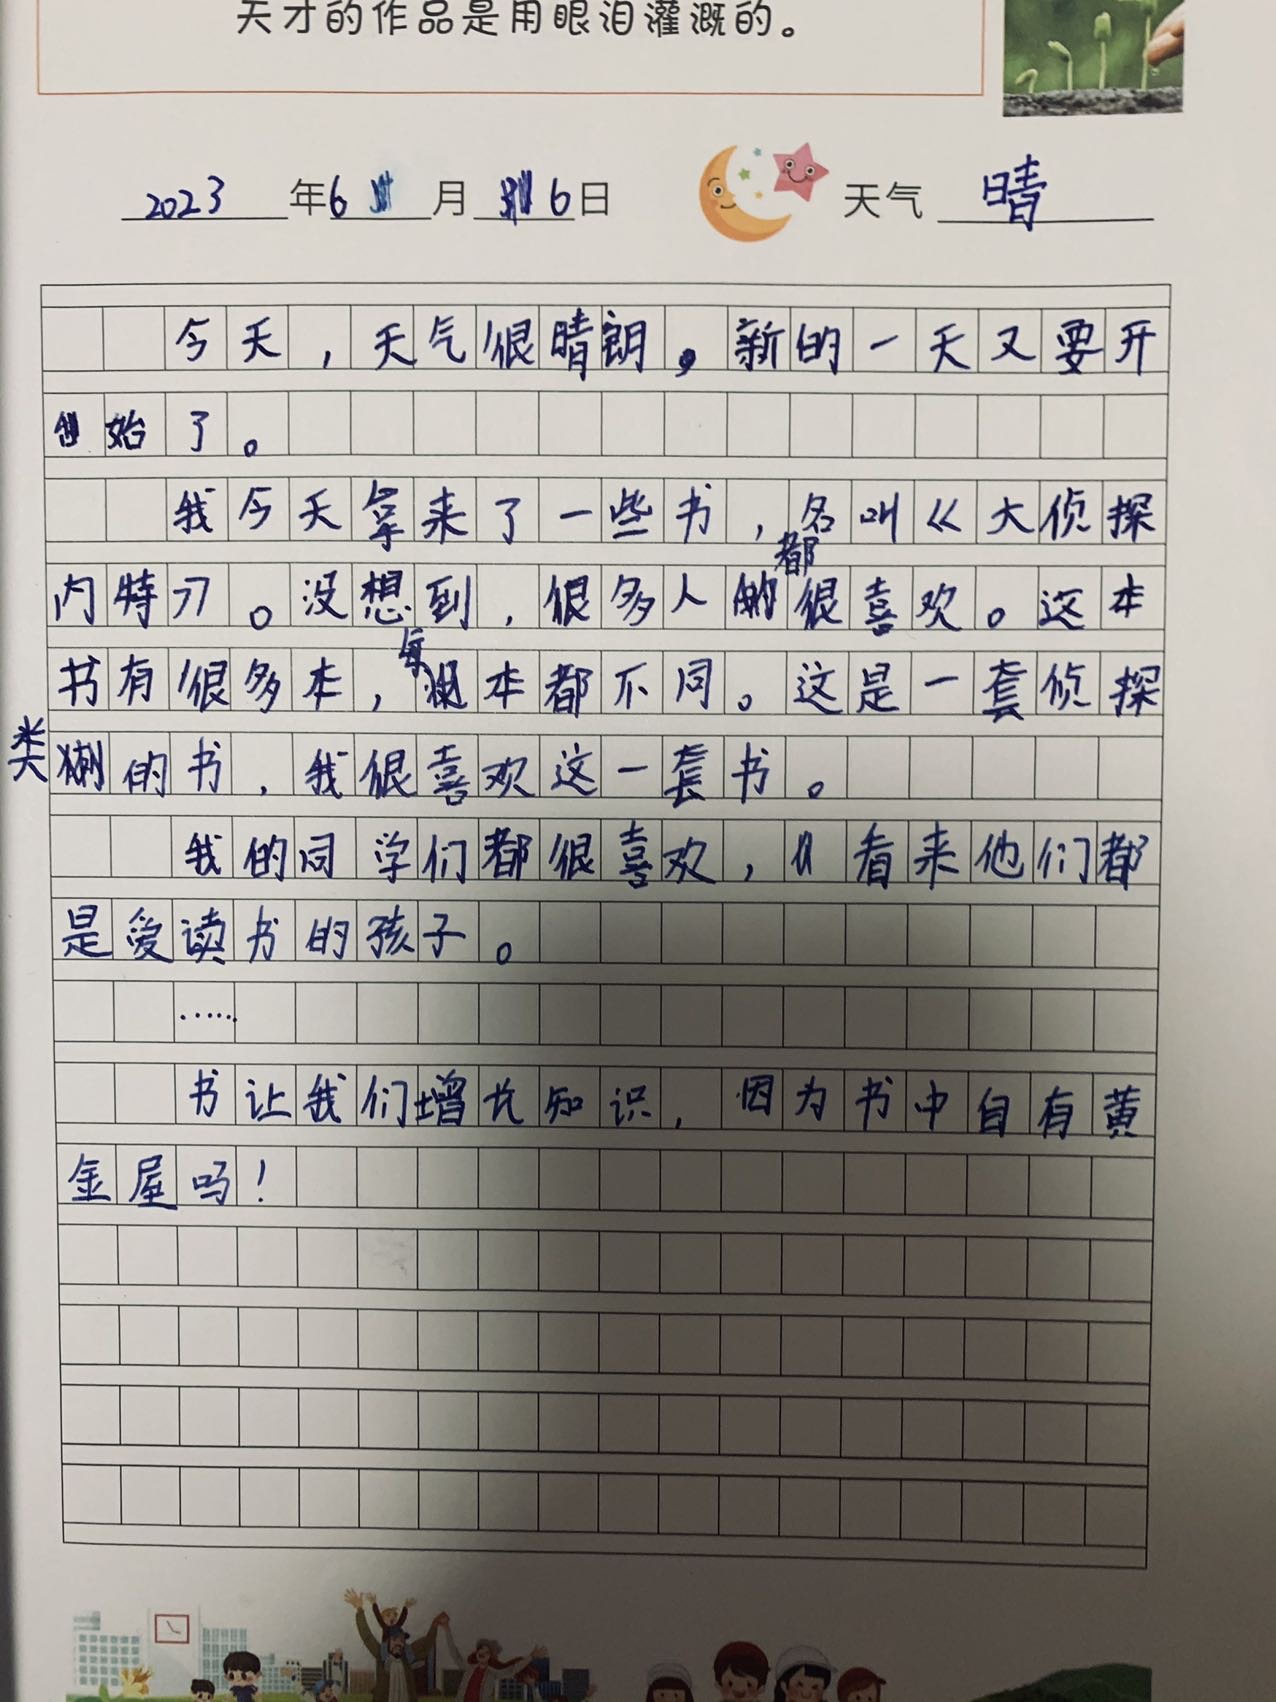 天才的作品是用眼泪灌溉的。
2023年6月6日 天气 晴
今天，天气很晴朗。新的一天又要开
始了。
我今天拿来了一些书，名叫《大侦探
内特》。没想到，很多人都很喜欢。这本
书有很多本，每本都不同。这是一套侦探
类的书，我很喜欢这一套书。
我的同学们都很喜欢，看来他们都
是爱读书的孩子。
……
书让我们增长知识，因为书中自有黄
金屋吗！